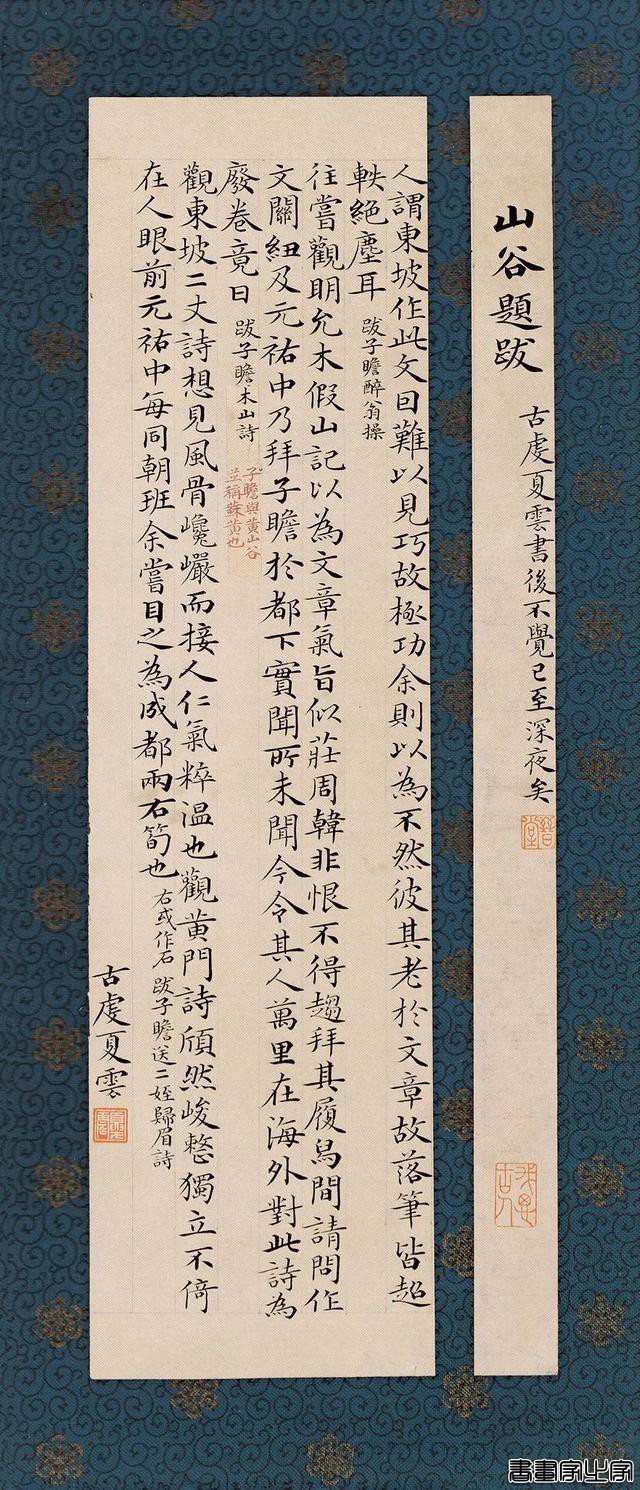 山谷題跋
古虔夏雲書後不覺已至深夜矣
人謂東坡作此文因難以見巧故極功余則以為不然彼其老於文章故落筆皆超
軼絕塵耳 跋子瞻醉翁操
往嘗觀明允木假山記以為文章氣旨似莊周韓非恨不得趨拜其履舄間請問作
文關紐及元祐中乃拜子瞻於都下實聞所未聞今令其人萬里在海外對此詩為
廢卷竟日 跋子瞻木山詩
子瞻與黃山谷
並稱蘇黃也
觀東坡二丈詩想見風骨巉巖而接人仁氣粹溫也觀黃門詩頎然峻整獨立不倚
在人眼前元祐中每同朝班余嘗目之為成都兩右筍也 右或作石 跋子瞻送二姪歸眉詩
古虔夏雲
書畫家出字